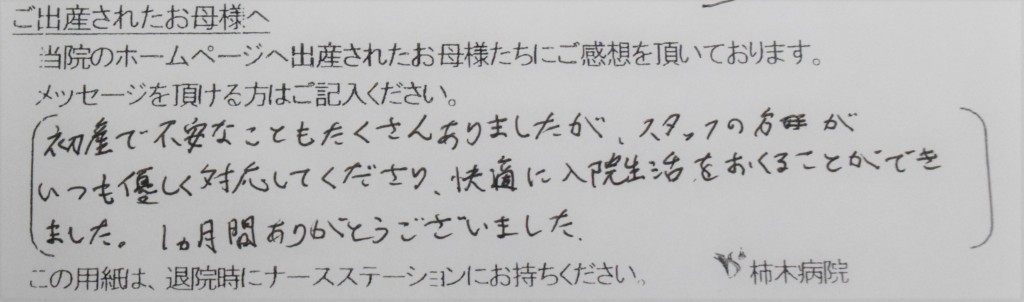 ご出産されたお母様へ
当院のホームページへ出産されたお母様たちにご感想を頂いております。
メッセージを頂ける方はご記入ください。
初産で不安なこともたくさんありましたが、スタッフの方が
いつも優しく対応してくださり、快適に入院生活をおくることができ
ました。1ヵ月間ありがとうございました.
この用紙は、退院時にナースステーションにお持ちください。
柿木病院